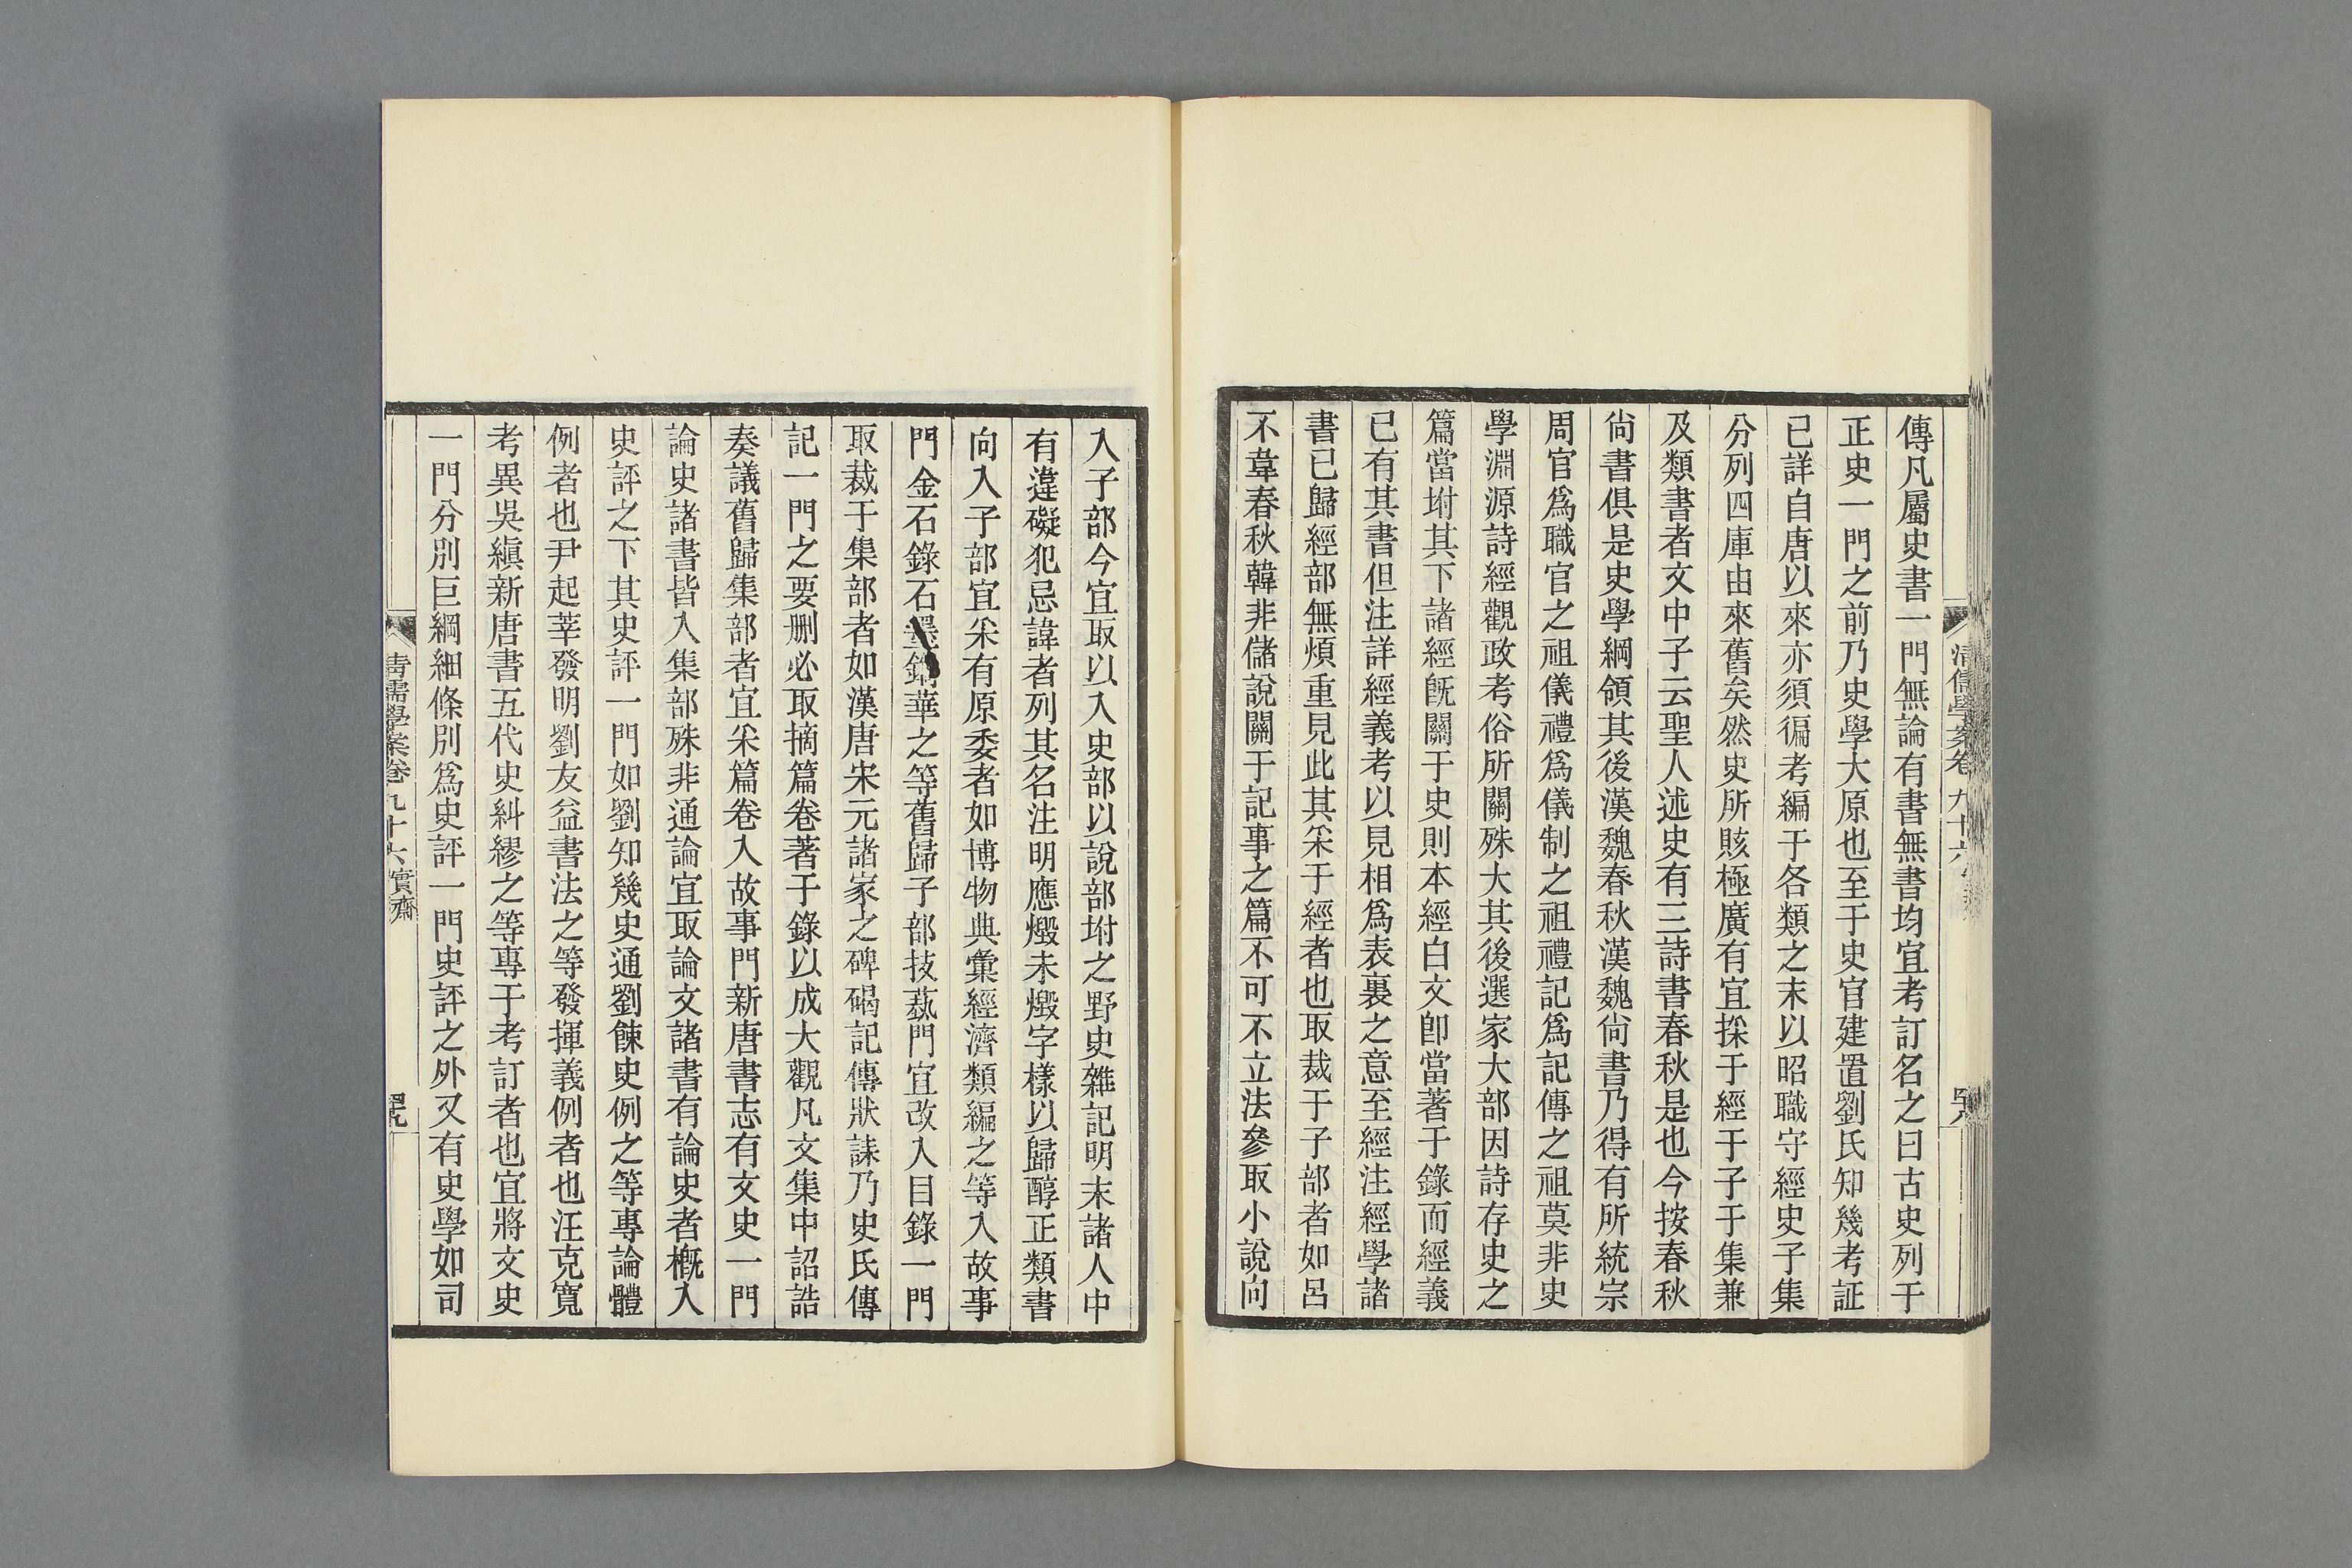 傳凡屬史書一門無論有書無書均宜考訂名之曰古史列于
正史一門之前乃史學大原也至于史官建置劉氏知幾考証
已詳自唐以來亦須徧考編于各類之末以昭職守經史子集
分列四庫由來舊矣然史所賅極廣有宜採于經于子于集兼
及類書者文中子云聖人述史有三詩書春秋是也今按春秋
尙書俱是史學綱領其後漢魏春秋漢魏尙書乃得有所統宗
周官爲職官之祖儀禮爲儀制之祖禮記爲記傳之祖莫非史
學淵源詩經觀政考俗所關殊大其後選家大部因詩存史之
篇當坿其下諸經旣關于史則本經白文卽當著于錄而經義
已有其書但注詳經義考以見相爲表裏之意至經注經學諸
書已歸經部無煩重見此其采于經者也取裁于子部者如呂
不韋春秋韓非儲說關于記事之篇不可不立法參取小說向
清儒學案卷九十六
入子部今宜取以入史部以說部坿之野史雜記明末諸人中
有違礙犯忌諱者列其名注明應燬未燬字樣以歸醇正類書
向入子部宜采有原委者如博物典彙經濟類編之等入故事
門金石錄石墨鐫華之等舊歸子部技藝門宜改入目錄一門
取裁于集部者如漢唐宋元諸家之碑碣記傳狀誄乃史氏傳
記一門之要删必取摘篇卷著于錄以成大觀凡文集中詔誥
奏議舊歸集部者宜采篇卷入故事門新唐書志有文史一門
論史諸書皆入集部殊非通論宜取論文諸書有論史者槪入
史評之下其史評一門如劉知幾史通劉餗史例之等專論體
例者也尹起莘發明劉友益書法之等發揮義例者也汪克寬
考異吳縝新唐書五代史糾繆之等專于考訂者也宜將文史
一門分別巨綱細條別爲史評一門史評之外又有史學如司
清儒學案卷九十六 實齋